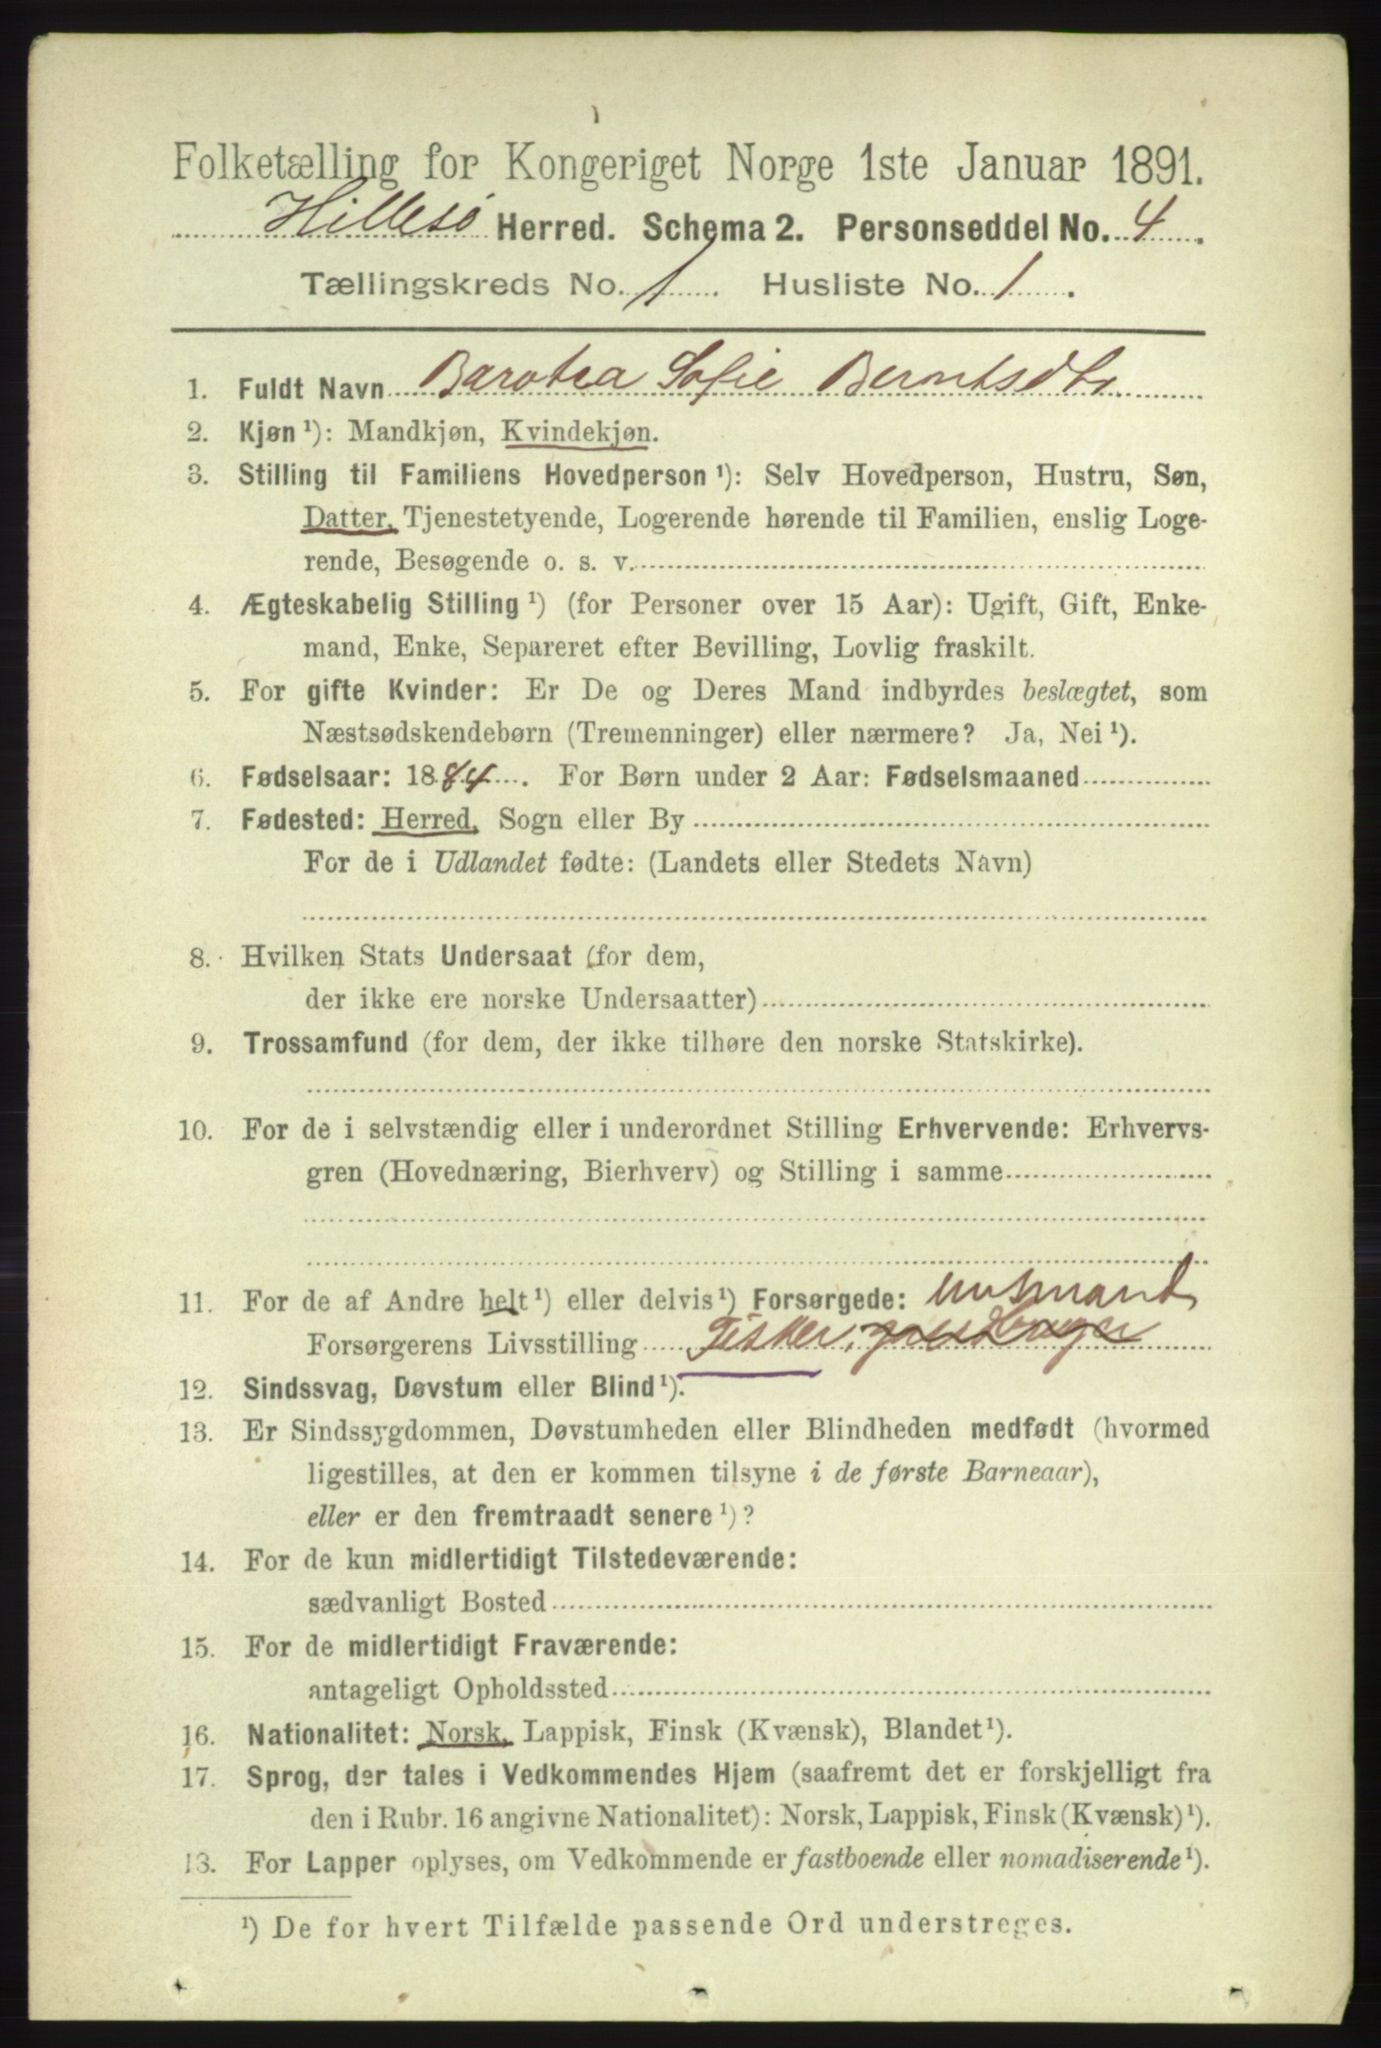 Folketælling for Kongeriget Norge 1ste Januar 1891.
Hillesø Herred. Schema 2. Personseddel No. 4.
Tællingskreds No. 1. Husliste No. 1.
1. Fuldt Navn Barotea Sofie Berntsdtr
2. Kjøn ¹): Mandkjøn, Kvindekjøn.
3. Stilling til Familiens Hovedperson ¹): Selv Hovedperson, Hustru, Søn,
Datter, Tjenestetyende, Logerende hørende til Familien, enslig Loge-
rende, Besøgende o. s. v.
4. Ægteskabelig Stilling ¹) (for Personer over 15 Aar): Ugift, Gift, Enke-
mand, Enke, Separeret efter Bevilling, Lovlig fraskilt.
5. For gifte Kvinder: Er De og Deres Mand indbyrdes beslægtet, som
Næstsødskendebørn (Tremenninger) eller nærmere? Ja, Nei ¹).
6. Fødselsaar: 1884. For Børn under 2 Aar: Fødselsmaaned
7. Fødested: Herred, Sogn eller By
For de i Udlandet fødte: (Landets eller Stedets Navn)
8. Hvilken Stats Undersaat (for dem,
der ikke ere norske Undersaatter)
9. Trossamfund (for dem, der ikke tilhøre den norske Statskirke).
10. For de i selvstændig eller i underordnet Stilling Erhvervende: Erhvervs-
gren (Hovednæring, Bierhverv) og Stilling i samme
11. For de af Andre helt ¹) eller delvis ¹) Forsørgede: husmand
Forsørgerens Livsstilling Fisker, gaardbruger
12. Sindssvag, Døvstum eller Blind ¹).
13. Er Sindssygdommen, Døvstumheden eller Blindheden medfødt (hvormed
ligestilles, at den er kommen tilsyne i de første Barneaar),
eller er den fremtraadt senere ¹)?
14. For de kun midlertidigt Tilstedeværende:
sædvanligt Bosted
15. For de midlertidigt Fraværende:
antageligt Opholdssted
16. Nationalitet: Norsk, Lappisk, Finsk (Kvænsk), Blandet ¹).
17. Sprog, der tales i Vedkommendes Hjem (saafremt det er forskjelligt fra
den i Rubr. 16 angivne Nationalitet): Norsk, Lappisk, Finsk (Kvænsk) ¹).
13. For Lapper oplyses, om Vedkommende er fastboende eller nomadiserende ¹).
¹) De for hvert Tilfælde passende Ord understreges.